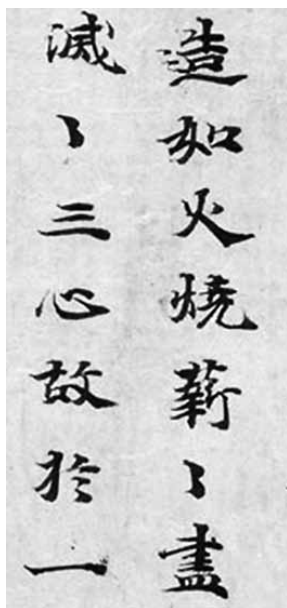 造如火燒薪〻盡
滅〻三心故於一